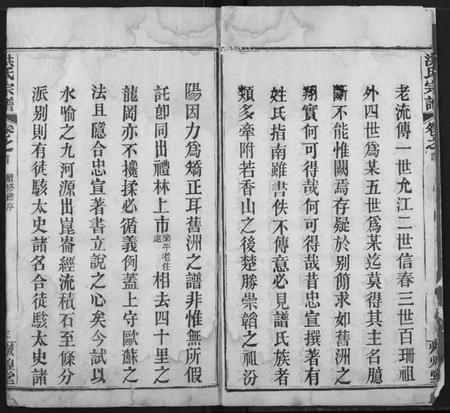 洪氏宗譜
卷之首
老流傳一世允江二世信春三世百珊祖
外四世爲某五世爲某迄莫得其主名臆
斷不能惟闕焉存疑於别簡求如舊洲之
翔實何可得哉何可得哉昔忠宣撰著有
姓氏指南雖書佚不傳意必見譜氏族者
類多牽附若香山之後楚勝崇韜之祖汾
陽因力爲矯正耳舊洲之譜非惟無所假
託卽同出禮林上市樂平老住處相去四十里之
龍岡亦不攙揉必循義例蓋上守歐蘇之
法且隱合忠宣著書立說之心矣今試以
水喻之九河源出崑崙經流積石至條分
派别則有徒駭太史諸名合徒駭太史諸
洪氏宗譜
卷之首
續修譜序
敦煌堂